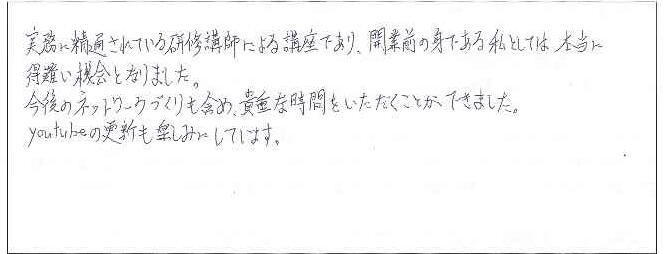 実務に精通されている研修講師による講座であり、開業前の身である私としては本当に
得難い機会となりました。
今後のネットワークづくりも含め、貴重な時間をいただくことができました。
youtubeの更新も楽しみにしています。